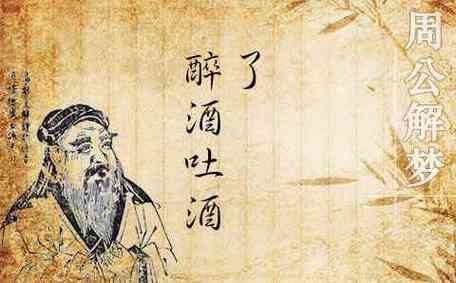 周公解梦
了
醉酒吐酒